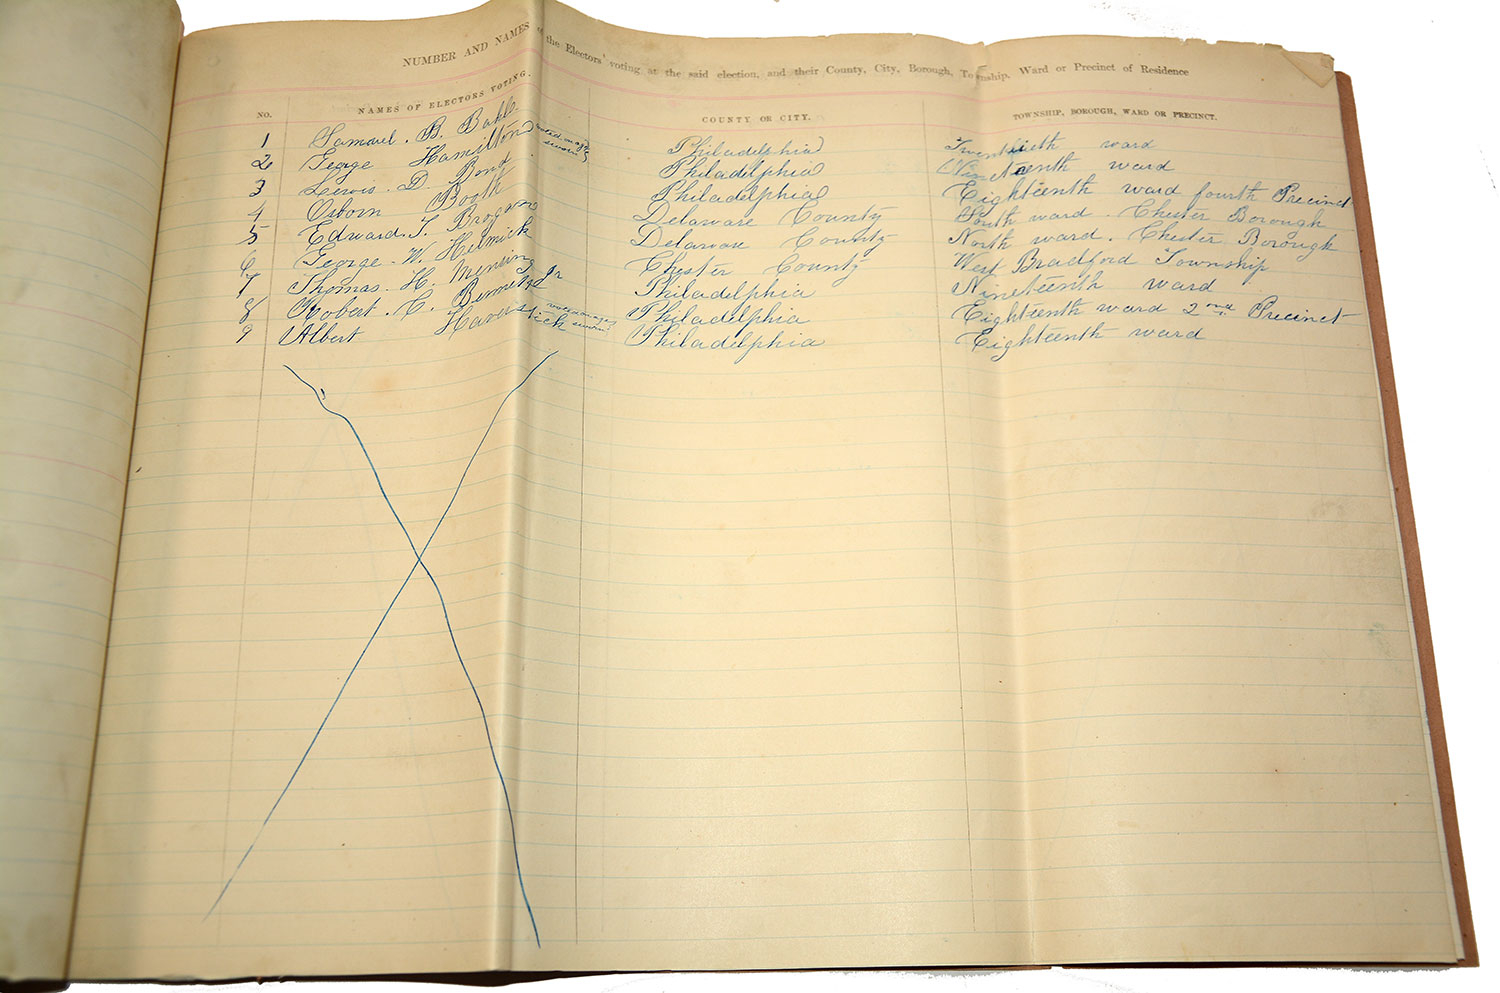 NUMBER AND NAMES of the Electors' voting at the said election, and their County, City, Borough, Township, Ward or Precinct of Residence
No. NAMES OF ELECTORS VOTING. COUNTY OR CITY. TOWNSHIP, BOROUGH, WARD OR PRECINCT.
1 Samuel . B. Bahl Philadelphia Twentieth ward
2 George Hamilton voted on age sworn Philadelphia Nineteenth ward
3 Lewis . D. Bond Philadelphia Eighteenth ward fourth Precinct
4 Osborn Booth Delaware County South ward . Chester Borough
5 Edward . T. Brogan Delaware County North ward . Chester Borough
6 George . W. Helmick Chester County West Bradford Township
7 Thomas . H. Mensing Philadelphia Nineteenth ward
8 Robert . C. Jr Philadelphia Eighteenth ward 2nd Precinct
9 Albert Haverstick voted on age sworn Philadelphia Eighteenth ward